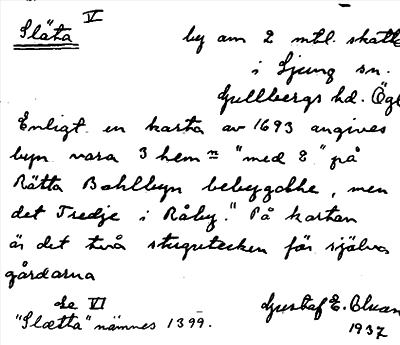 Släta V
by om 2 mtl. skatte
i Ljung sn.
Gullbergs hd. Ögl
Enligt en karta av 1693 angives
byn vara 3 hem n "med 2" på
Rätta Bohlbyn bebyggdhe, men
det Tredje i Råby." På kartan
är det två stugutecken för själva
gårdarna
se VI
"Slætta" nämnes 1399.
Gustaf E.
1937